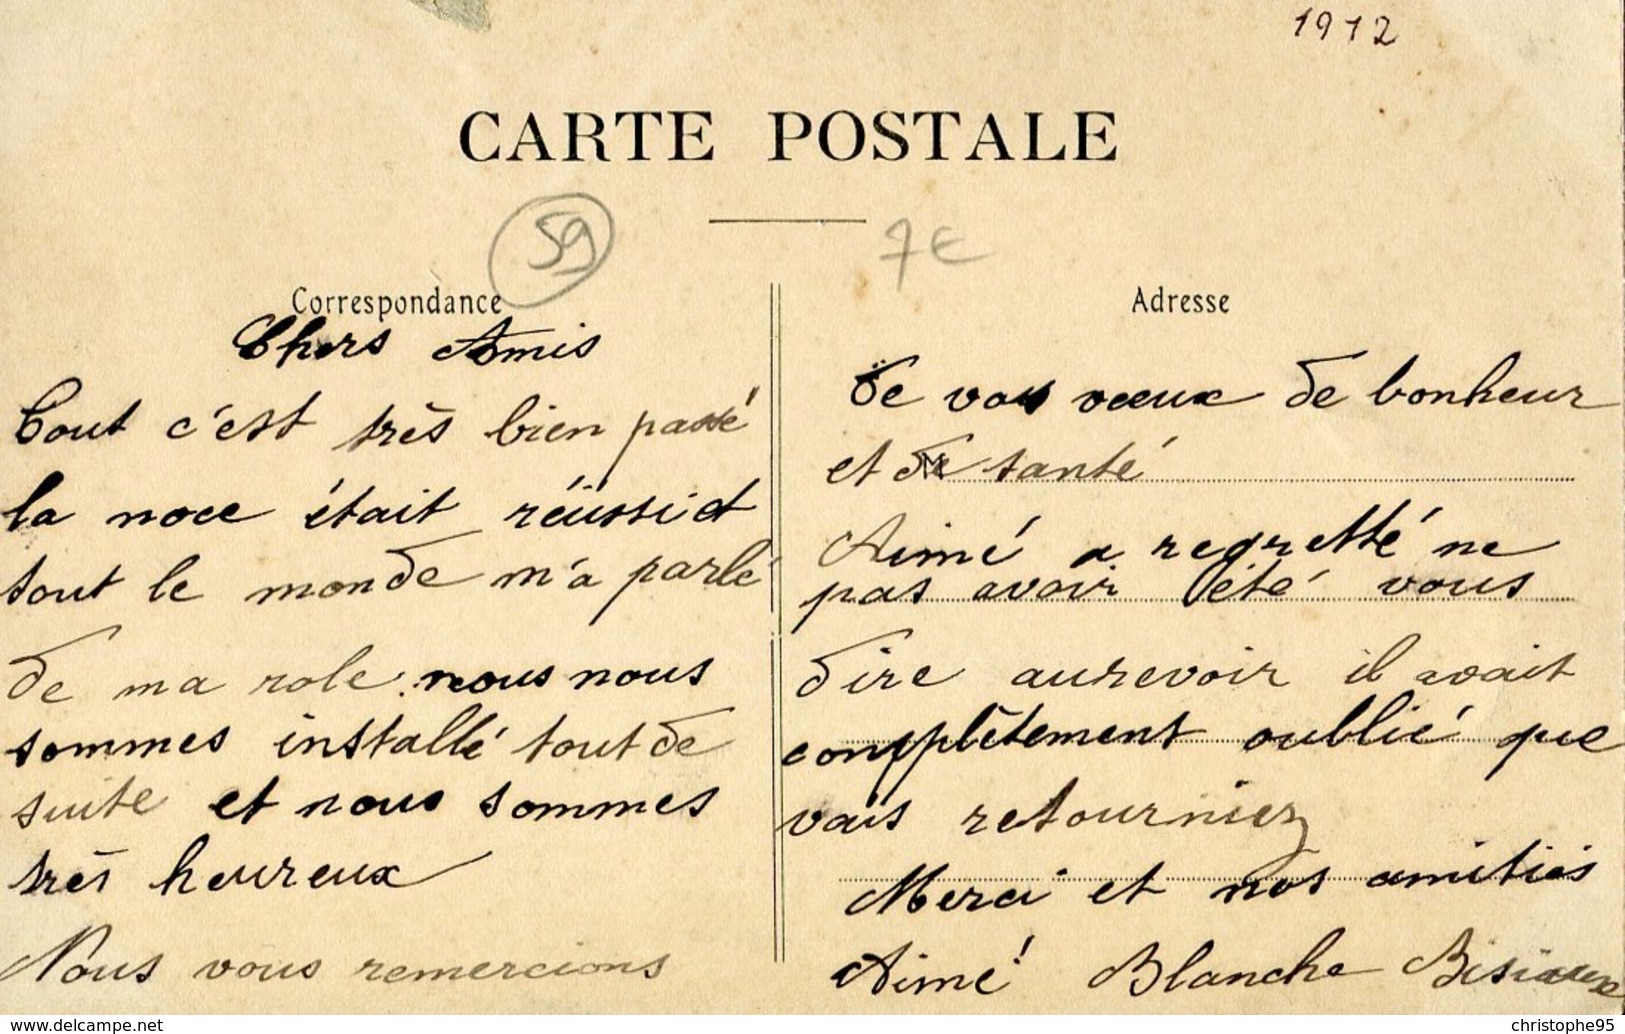 1912
CARTE POSTALE
59
7€
Correspondance
Chers Amis
Tout c'est très bien passé
la noce était réussi et
tout le monde m'a parlé
de ma role nous nous
sommes installé tout de
suite et nous sommes
très heureux
Nous vous remercions
Adresse
de vos vœux de bonheur
et de santé
Aimé a regretté ne
pas avoir été vous
dire aurevoir il avait
complètement oublié que
vais retourniez
Merci et nos amitiés
Aimé Blanche
www.delcampe.net
christophe95